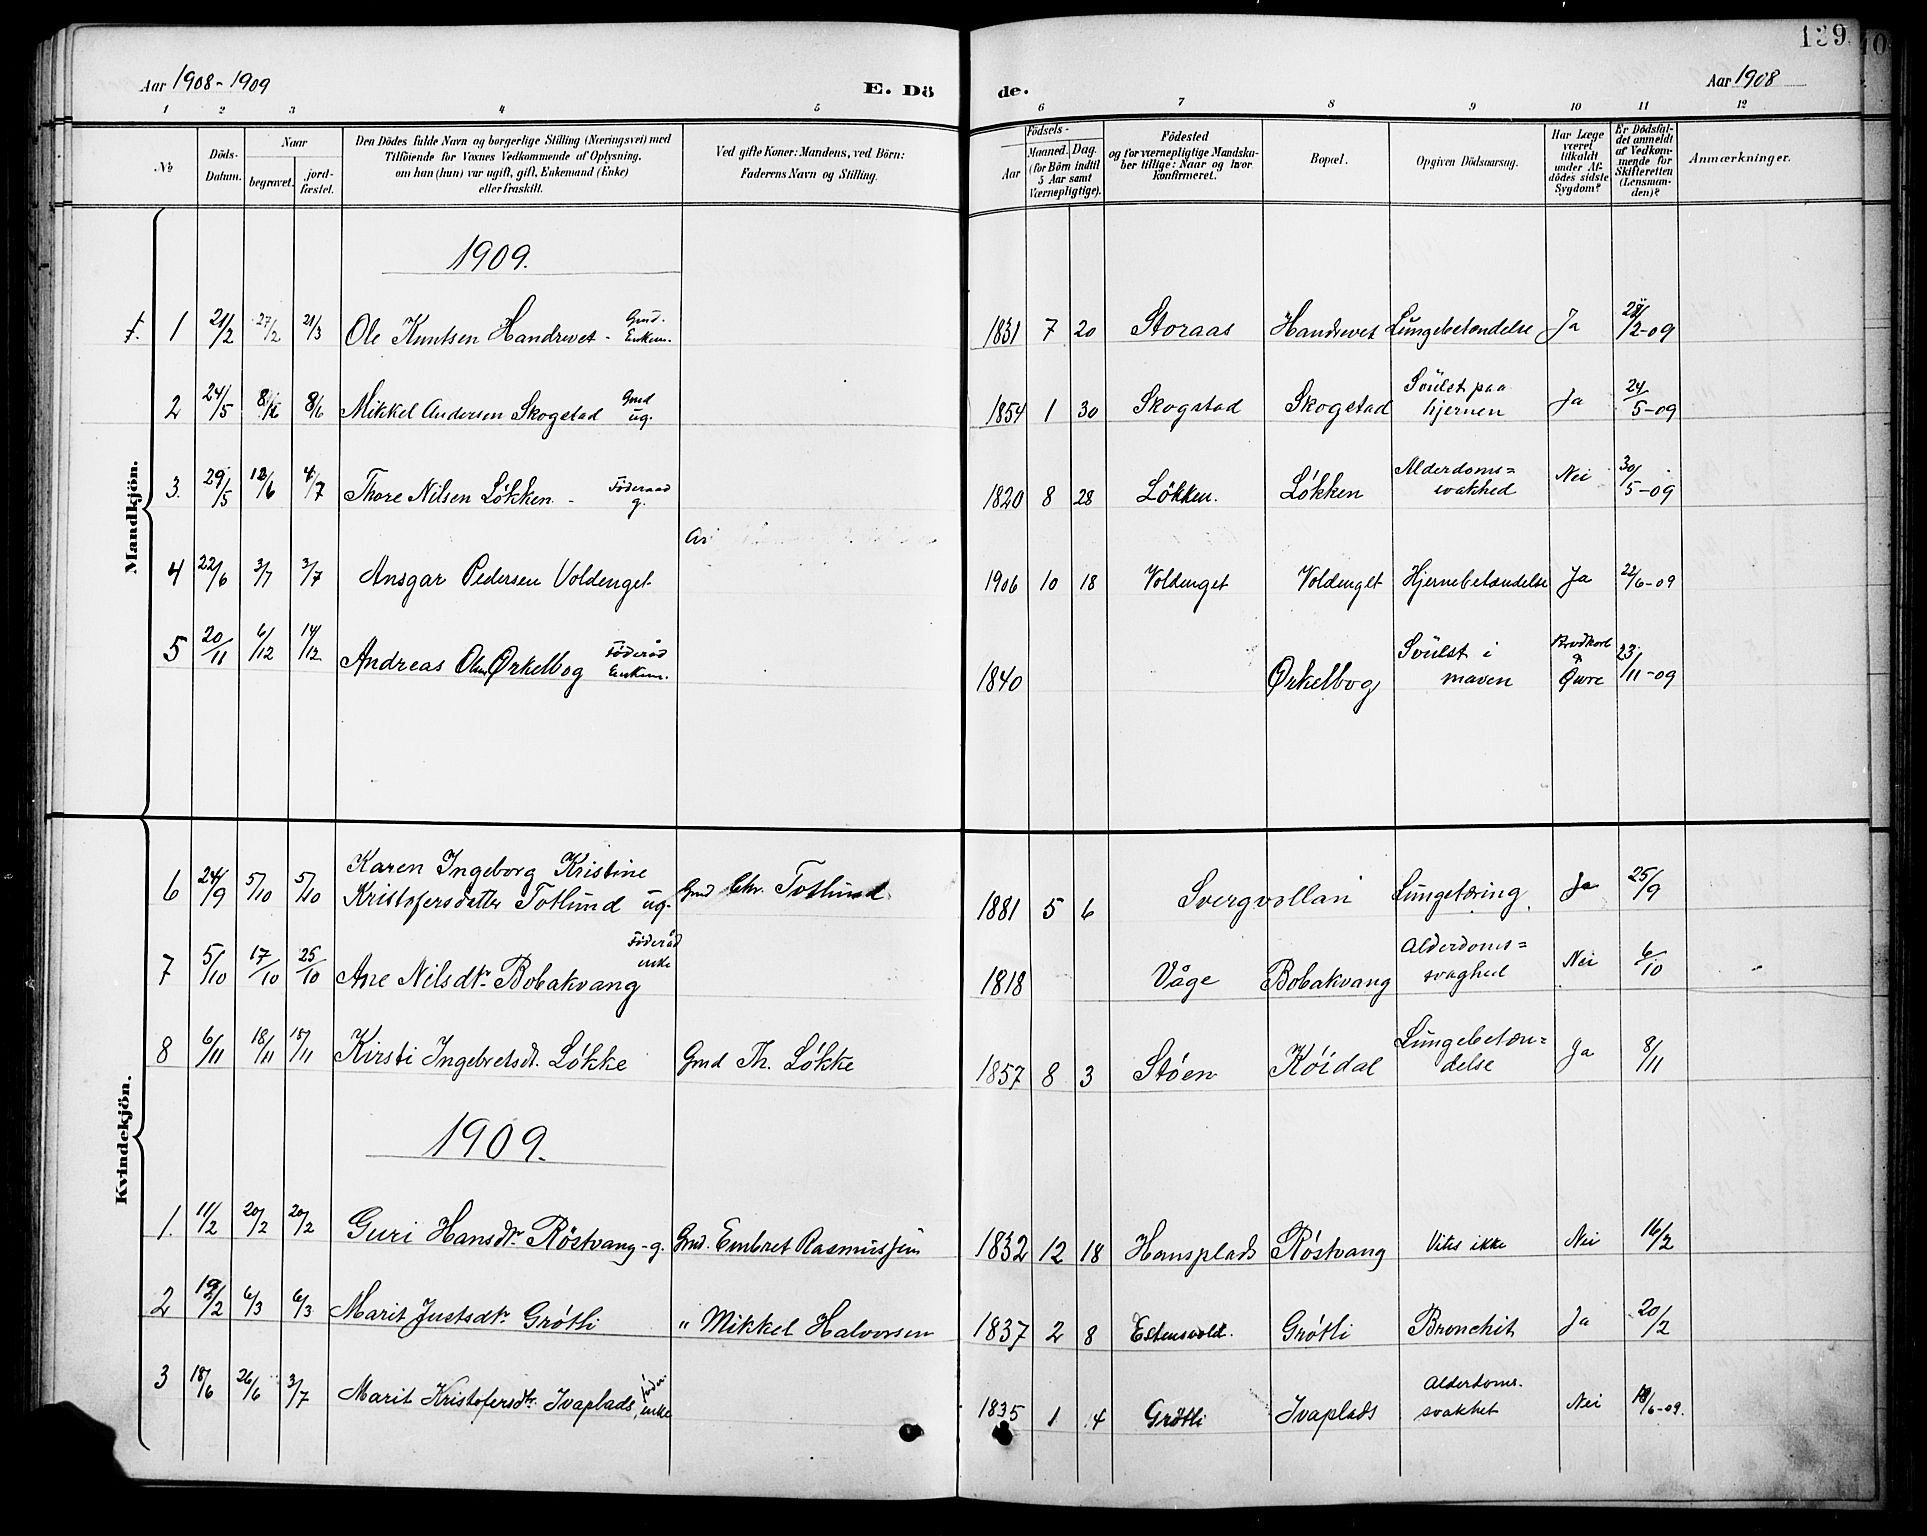 139
Aar 1908-1909 E. Dö de. Aar 1908
1 2 3 4 5 6 7 8 9 10 11 12
No
Döds-Datum.
Naar
begravet. jordfæstet.
Den Dödes fulde Navn og borgerlige Stilling (Næringsvei) med
Tilföiende for Voxnes Vedkommende af Oplysning,
om han (hun) var ugift, gift, Enkemand (Enke)
eller fraskilt.
Ved gifte Koner: Mandens, ved Börn:
Faderens Navn og Stilling.
Födsels-
Aar Maaned. Dag.
(for Börn indtil
5 Aar samt
Værnepligtige).
Födested
og for værnepligtige Mandska-
ber tillige: Naar og hvor
konfirmeret.
Bopæl.
Opgiven Dödsaarsag.
Har Læge
været
tilkaldt
under Af-
dödes sidste
Sygdom?
Er Dödsfal-
det anmeldt
af Vedkom-
mende for
Skifteretten
(Lensman-
den)?
Anmærkninger.
Mandkjön.
1909.
1 21/2 27/2 21/3 Ole Knutsen Handrevet - Gmd. Enkem. 1831 7 20 Storaas Handrevet Lungebetændelse Ja 2-09
2 24/5 8/6 8/6 Mikkel Andersen Skogstad Gmd ug. 1854 1 30 Skogstad Skogstad Svulst paa hjernen Ja 24/5-09
3. 29/5 12/6 4/7 Thore Nilsen Løkken - Föderaad g. 1820 8 28 Løkken. Løkken Alderdoms= svakhed Nei 30/5-09
4 22/6 3/7 3/7 Ansgar Pedersen Voldenget 1906 10 18 Voldenget Voldenget Hjernebetændelse Ja 22/6-09
5 20/11 6/12 14/12 Andreas Olsen Ørkelbog Föderåd Enkem. 1840 Ørkelbog Svulst i maven Qure 23/11-09
Kvindekjön.
6 24/9 5/10 5/10 Karen Ingeborg Kristine
Kristofersdatter Totlund ug. Gmd Chr. Totlund 1881 5 6 Svergvollan Lungetæring. Ja 25/9
7 5/10 17/10 25/10 Ane Nilsdtr. Bobakvang Föderåd enke 1818 Våge Bobakvang Alderdoms= svaghed Nei 6/10
8 6/11 18/11 18/11 Kirsti Ingebretsdt. Løkke Gmd Th. Løkke 1857 8 3 Støen Köidal Lungebetæn= delse Ja 8/11
1909.
1. 11/2 20/2 20/2 Guri Hansdtr Röstvang - g. Gmd. Embret Rasmussen 1832 12 18 Hansplads Röstvang Vites ikke Nei 16/2
2 19/2 6/3 6/3 Marit Justsdtr Grøtli " Mikkel Halvorsen 1837 2 8 Estensvold. Grøtli Bronchit Ja 20/2
3 18/6 26/6 3/7 Marit Kristofersdtr. Ivaplads, enke 1835 1 4 Grøtli Ivaplads Alderdoms. svakhet Nei 18/6-09.